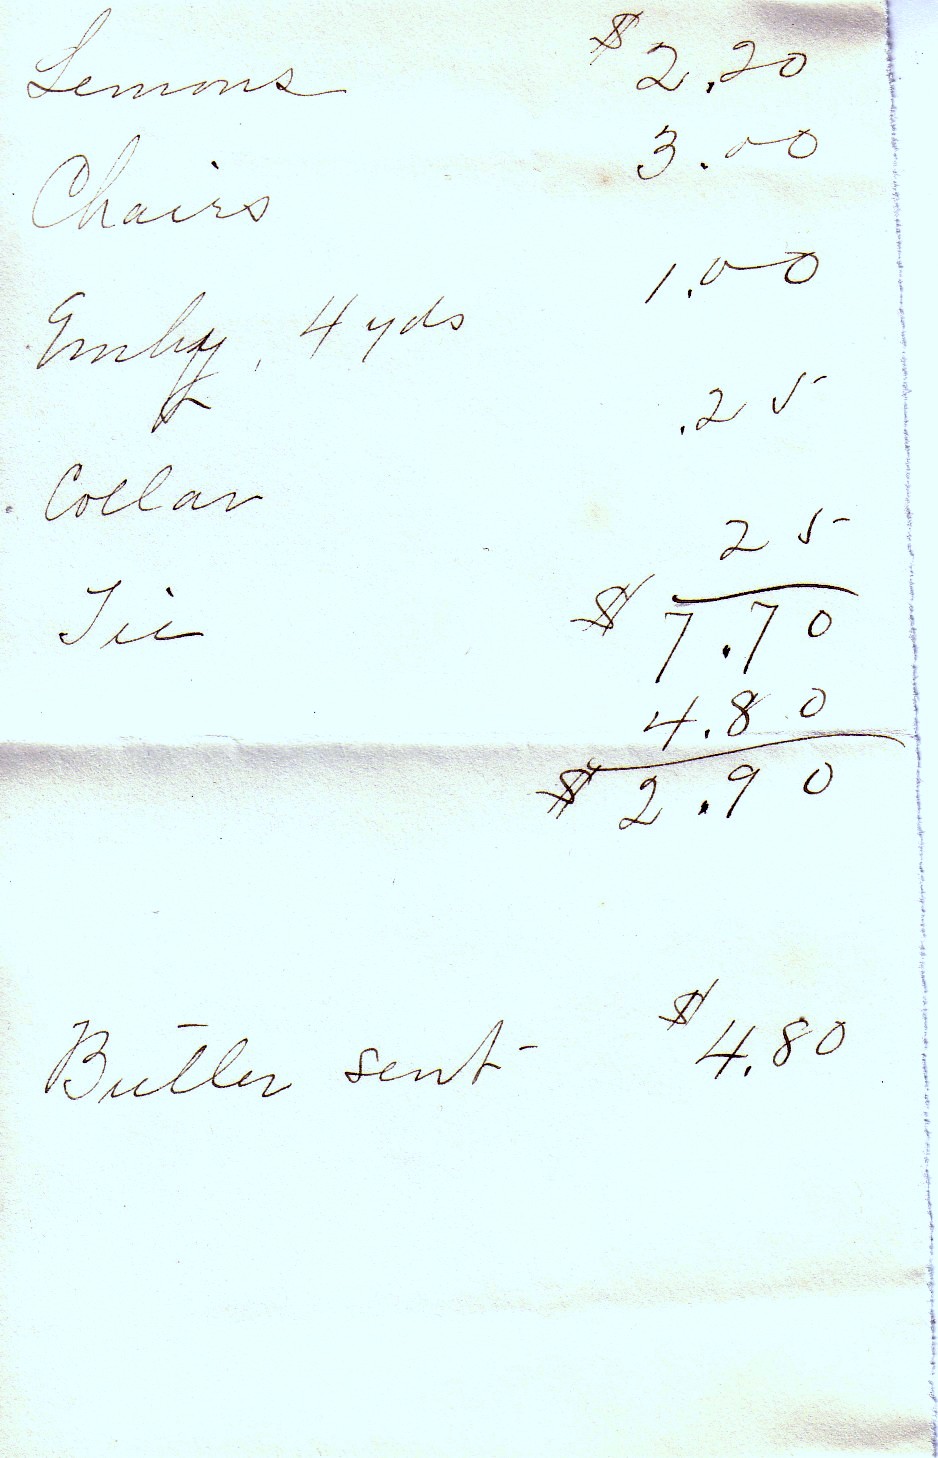 Lemons $2.20
Chairs 3.00
Emby, 4 yds 1.00
Collar .25
Tie 25
$7.70
4.80
$2.90
Butter sent $4.80